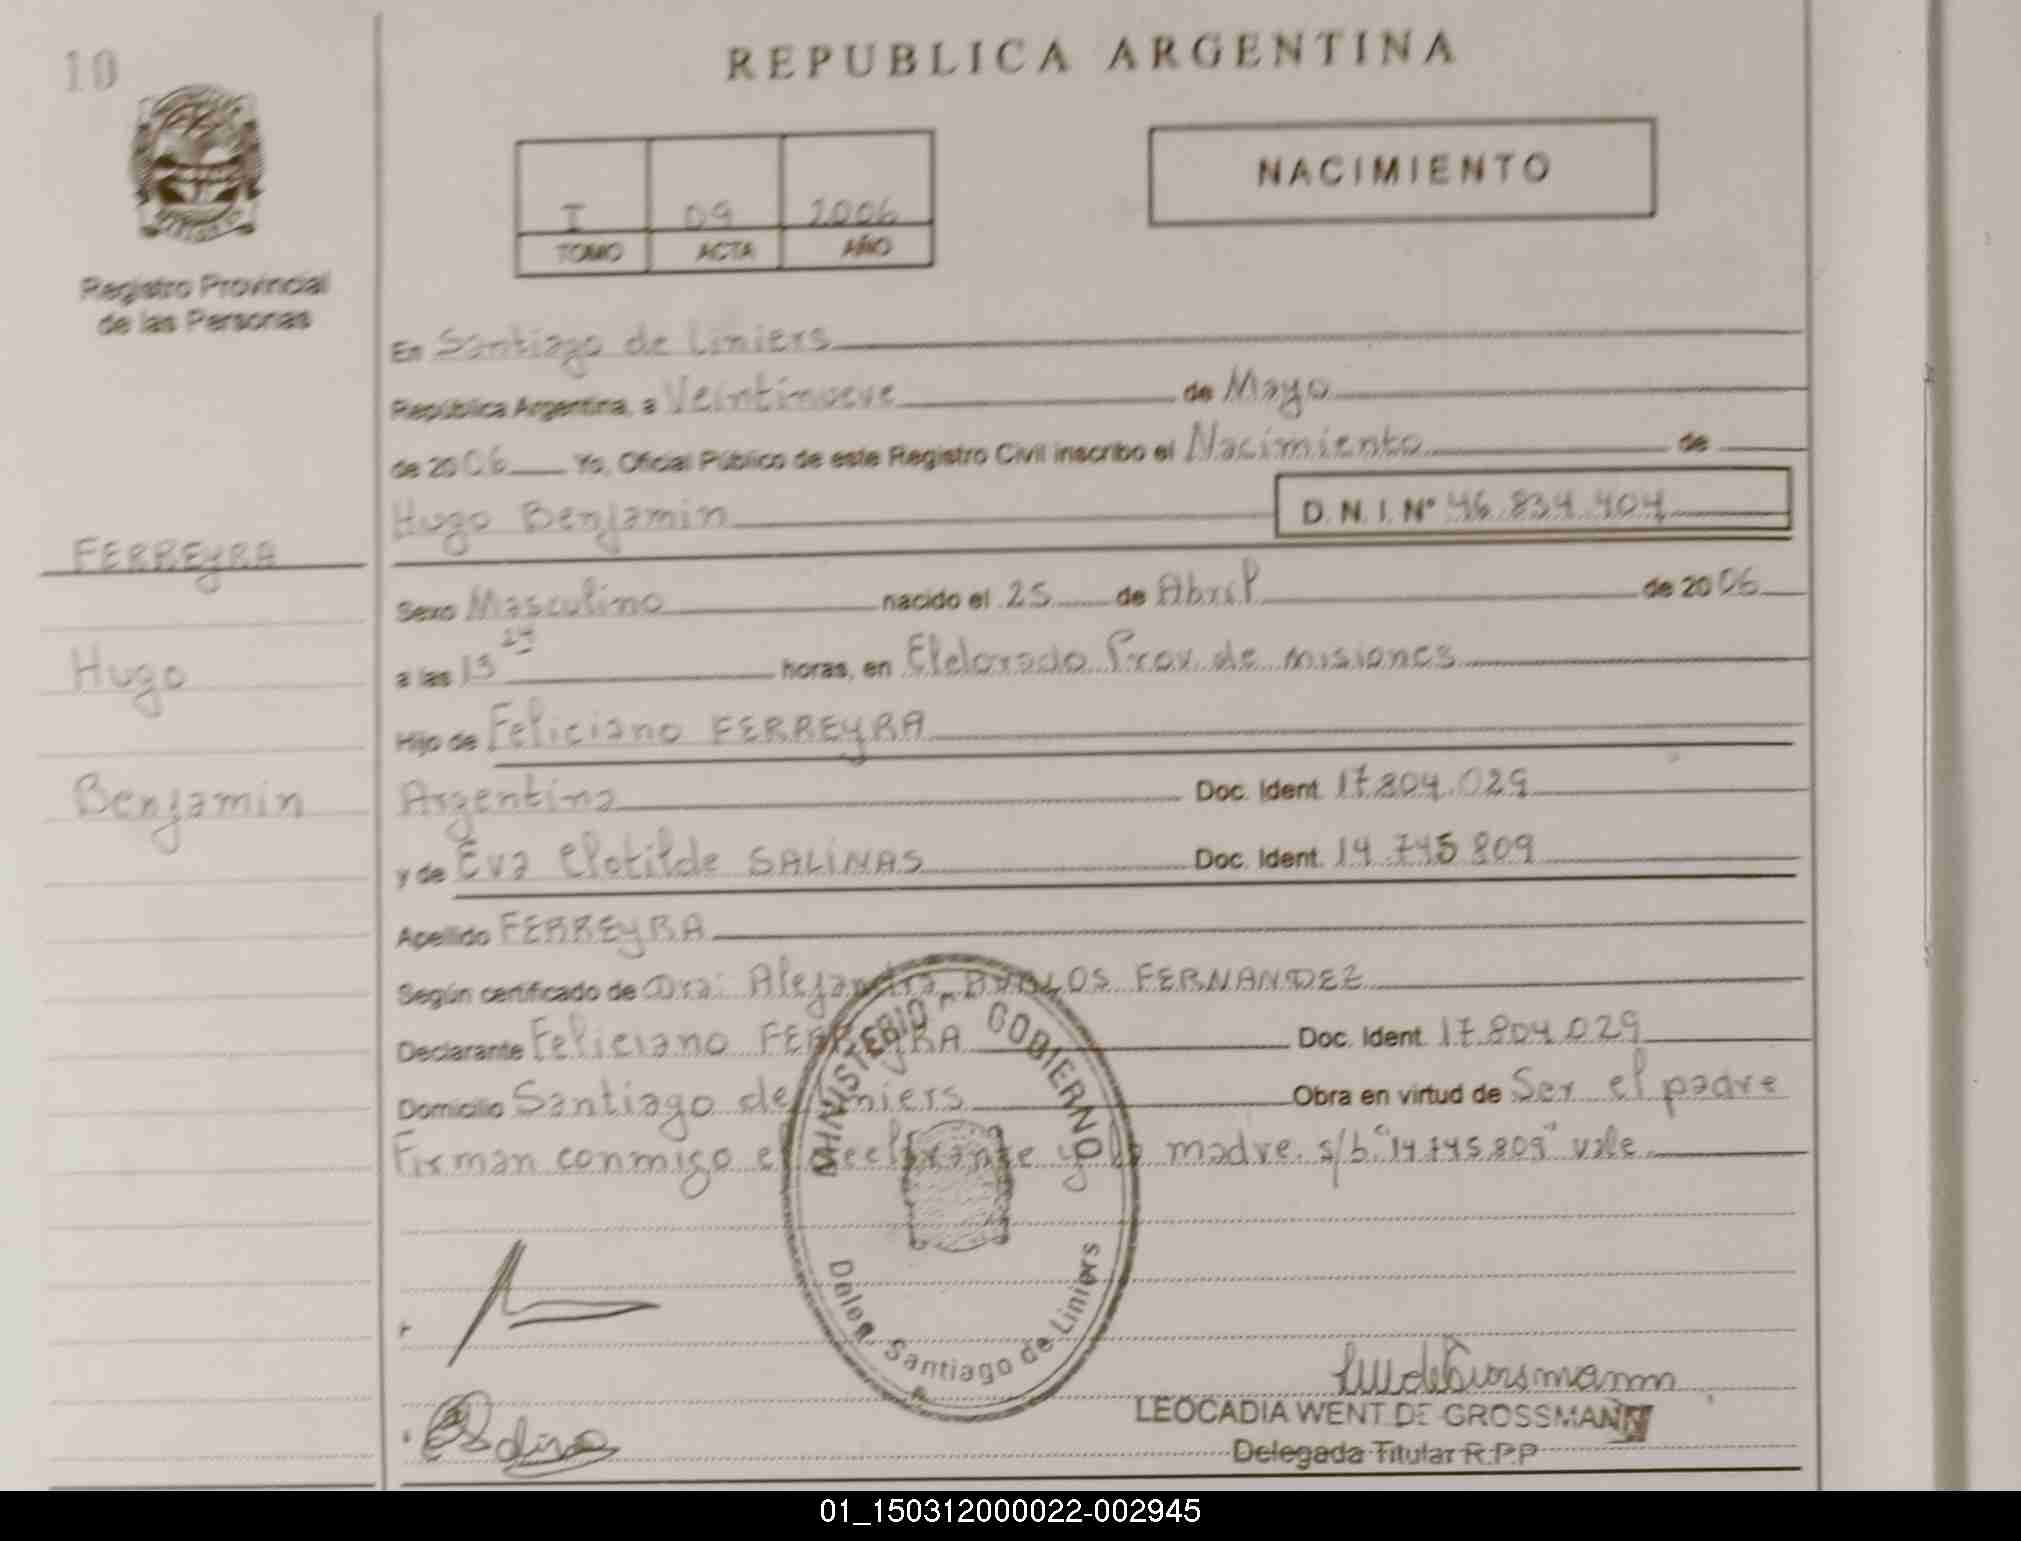 10
REPUBLICA ARGENTINA
NACIMIENTO
I 09 2006
TOMO ACTA AÑO
Registro Provincial
de las Personas
En Santiago de Liniers
República Argentina, a Veintinueve de Mayo
de 2006 Yo, Oficial Público de este Registro Civil inscribo el Nacimiento de
Hugo Benjamin D. N. I. N° 46.834.404
FERREYRA
Hugo
Benjamin
Sexo Masculino nacido el 25 de Abril de 2006
a las horas, en Eldorado Prov. de misiones
Hijo de Feliciano FERREYRA
Argentina Doc. Ident. 17.804.029
y de Eva Clotilde SALINAS Doc. Ident. 14.745.809
Apellido FERREYRA
Según certificado de Dra: Alejandra FERNANDEZ
Declarante Feliciano FERREYRA Doc. Ident. 17.804.029
Domicilio Santiago de Liniers Obra en virtud de Ser el padre
Firman conmigo el declarante y la madre. s/b "14.745.809" vale
MINISTERIO GOBIERNO
Deleg. Santiago de Liniers
LEOCADIA WENT DE GROSSMANN
Delegada Titular R.P.P
01_150312000022-002945